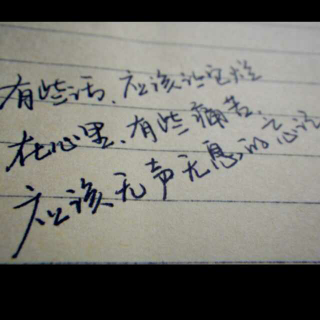 有些话、应该让它烂
在心里、有些痛苦、
应该无声无息的忘记